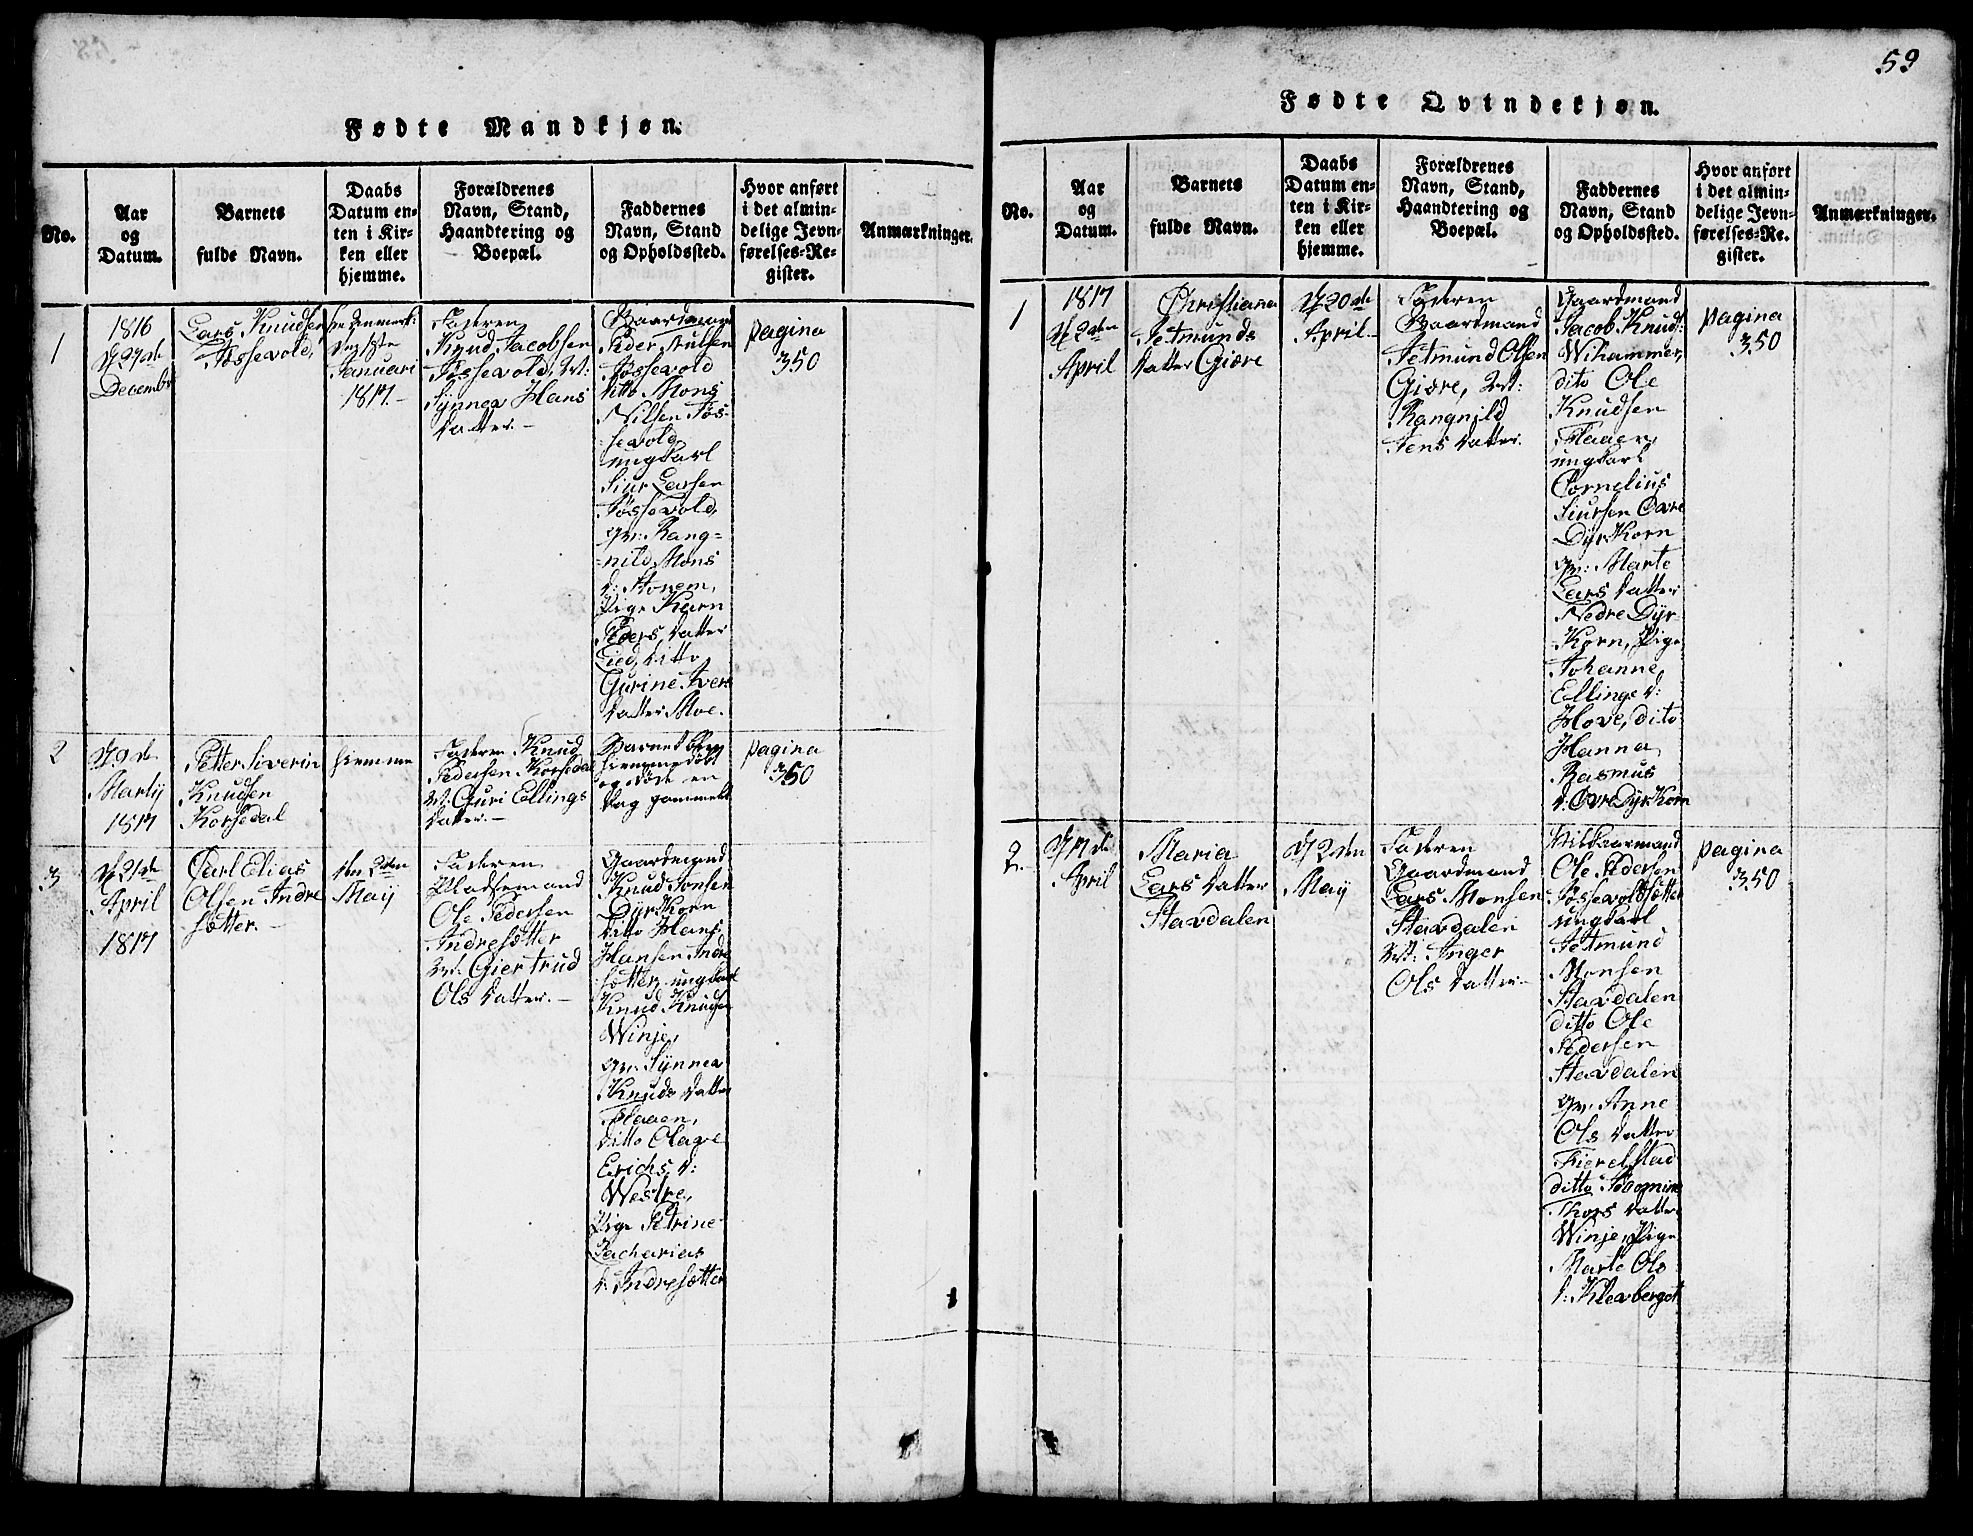 59
Fødte Mandkjøn.
No.
Aar
og
Datum.
Barnets
fulde Navn.
Daabs
Datum en-
ten i Kir-
ken eller
hjemme.
Forældrenes
Navn, Stand,
Haandtering og
Boepæl.
Faddernes
Navn, Stand
og Opholdssted.
Hvor anført
i det almin-
delige Jevn-
førelses-Re-
gister.
Anmærkninger.
1
1816
27de
Decembr
Lars Knudsen
Fossevold,
Januari
1817.-
Faderen
Knud Jacobsen
Fossevold,
Synnea Hans
datter.-
Gaardmand
Peder Nilsen
Fossevold
ditto Mons
Nilsen Fos-
sevold,
ungkarl
Siur Larsen
Fossevold,
qv: Rang=
=nild Mons
d: Monem,
Pige Karn
Peders datter
Lied, ditto
Gurine Ivers
datter Moe.
pagina
350
2
9de
Martij
1817
Petter Siverin
Knudsen
Korsedal
hiemme
Faderen Knud
Pedersen Korsedal
Guri Ellings
datter.-
Barnet blev
hiemmedøbt
og døde en
dag gammelt
pagina
350
3
21de
April
1817
Carl Elias
Olsen Indre
sætter.-
den 2den
Maij
Faderen
Pladsemand
Ole Pedersen
Indresætter
Giertrud
Ols datter.-
Gaardmand
Knud Jonsen
Dyrkorn
ditto Hans
Hansen Indre
sætter, ungkarl
Knud Knudsen
Winje,
qv: Synnea
Knuds datter
Flaaen,
ditto Olave
Erichs d:
Westre,
Pige Petrine
Zacharias
d: Indresætter
Fødte Qvindekjøn.
No.
Aar
og
Datum.
Barnets
fulde Navn.
Daabs
Datum en-
ten i Kir-
ken eller
hjemme.
Forældrenes
Navn, Stand,
Haandtering og
Boepæl.
Faddernes
Navn, Stand
og Opholdssted.
Hvor anført
i det almin-
delige Jevn-
førelses-Re-
gister.
Anmærkninger.
1
1817
2den
April
Christiana
Setmunds
datter Giøre
20de
April.-
Faderen
Gaardmand
Setmund Olsen
Giøre,
Rangnild
Jens datter.
Gaardmand
Jacob Knuds:
Wihammer,
dito Ole
Knudsen
Flaaen,
ungkarl
Cornelius
Siursen Øvre
Dyrkorn
qv: Marte
Lars datter
Nedre Dyr-
korn, Pige
Johanne
Ellings d:
Hove, dito
Hanna
Rasmus
d: Øvre Dyrkorn
pagina
350
2
17de
April
Maria
Lars datter
Stavdalen
2den
Maij
Faderen
Gaardmand
Lars Monsen
Stavdalen
Inger
Ols datter-
Ole Pedersen
Fossevoldsætter
ungkarl
Setmund
Monsen
Stavdalen
ditto Ole
Pedersen
Stavdalen
qv: Anne
Ols datter
Fierelstad
ditto
Thors datter
Winje, Pige
Marte Ols
d:
pagina
350